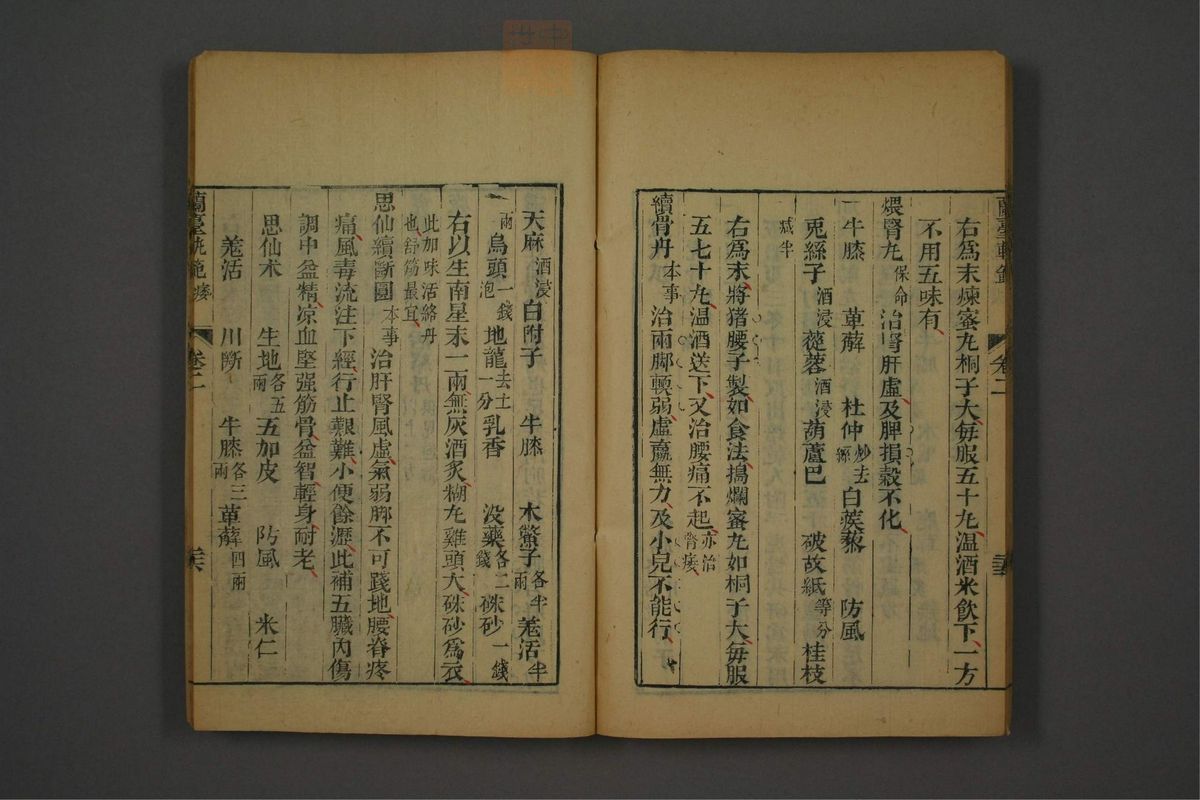 右爲末煉蜜丸桐子大每服五十丸溫酒米飲下一方
不用五味有
煨腎丸保命治腎肝虛及脾損穀不化
牛膝 萆薢 杜仲炒去 白蒺藜 防風
兎絲子酒浸 蓯蓉酒浸 葫蘆巴 破故紙等分 桂枝
减半
右爲末將猪腰子製如食法搗爛蜜丸如桐子大每服
五七十丸溫酒送下又治腰痛不起亦治腎痿
續骨丹本事 治兩脚輭弱虛羸無力及小兒不能行
卷二
天麻酒浸 白附子 牛膝 木鱉子各半兩 羗活半
兩 烏頭一錢泡 地龍去土一分 乳香 没藥各二錢 硃砂一錢
右以生南星末一兩無灰酒炙糊丸雞頭大硃砂爲衣
此加味活絡丹
也舒筋最宜
思仙續斷圓本事 治肝腎風虛氣弱脚不可踐地腰脊疼
痛風毒流注下經行止艱難小便餘瀝此補五臟內傷
調中益精凉血堅强筋骨益智輕身耐老
思仙术 生地各五兩 五加皮 防風 米仁
羗活 川斷 牛膝各三兩 萆薢四兩
蘭臺軌範 痿 卷二